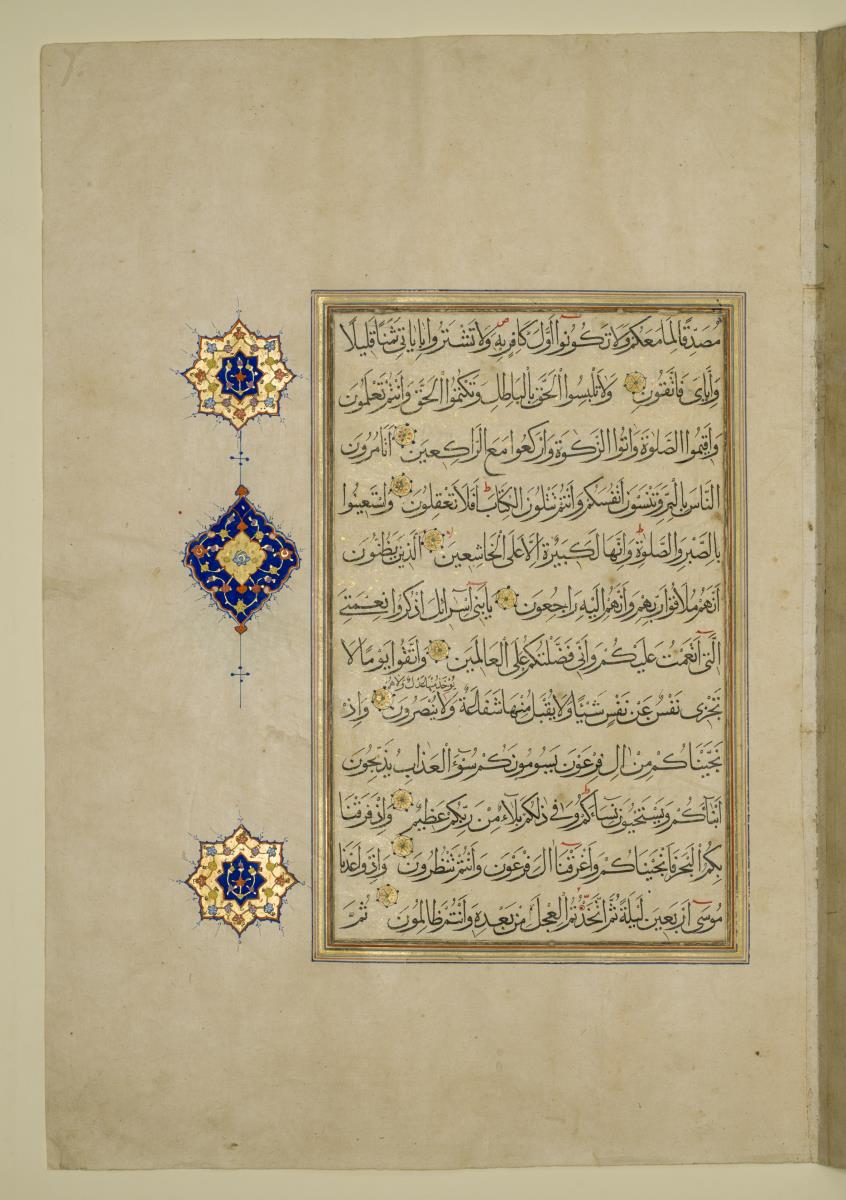 مُصَدِّقًا لِمَا مَعَكُمْ وَلَا تَكُونُوا أَوَّلَ كَافِرٍ بِهِ وَلَا تَشْتَرُوا بِآيَاتِي ثَمَنًا قَلِيلًا
وَإِيَّايَ فَاتَّقُونِ وَلَا تَلْبِسُوا الْحَقَّ بِالْبَاطِلِ وَتَكْتُمُوا الْحَقَّ وَأَنْتُمْ تَعْلَمُونَ
وَأَقِيمُوا الصَّلٰوةَ وَآتُوا الزَّكٰوةَ وَارْكَعُوا مَعَ الرَّاكِعِينَ أَتَأْمُرُونَ
النَّاسَ بِالْبِرِّ وَتَنْسَوْنَ أَنْفُسَكُمْ وَأَنْتُمْ تَتْلُونَ الْكِتَابَ أَفَلَا تَعْقِلُونَ وَاسْتَعِينُوا
بِالصَّبْرِ وَالصَّلٰوةِ وَإِنَّهَا لَكَبِيرَةٌ إِلَّا عَلَى الْخَاشِعِينَ الَّذِينَ يَظُنُّونَ
أَنَّهُمْ مُلَاقُوا رَبِّهِمْ وَأَنَّهُمْ إِلَيْهِ رَاجِعُونَ يَا بَنِي إِسْرَائِلَ اذْكُرُوا نِعْمَتِيَ
الَّتِي أَنْعَمْتُ عَلَيْكُمْ وَأَنِّي فَضَّلْتُكُمْ عَلَى الْعَالَمِينَ وَاتَّقُوا يَوْمًا لَا
يُؤْخَذُ مِنْهَا عَدْلٌ وَلَا هُمْ
تَجْزِي نَفْسٌ عَنْ نَفْسٍ شَيْئًا وَلَا يُقْبَلُ مِنْهَا شَفَاعَةٌ وَلَا يُنْصَرُونَ وَإِذْ
نَجَّيْنَاكُمْ مِنْ آلِ فِرْعَوْنَ يَسُومُونَكُمْ سُوءَ الْعَذَابِ يُذَبِّحُونَ
أَبْنَاءَكُمْ وَيَسْتَحْيُونَ نِسَاءَكُمْ وَفِي ذٰلِكُمْ بَلَاءٌ مِنْ رَبِّكُمْ عَظِيمٌ وَإِذْ فَرَقْنَا
بِكُمُ الْبَحْرَ فَأَنْجَيْنَاكُمْ وَأَغْرَقْنَا آلَ فِرْعَوْنَ وَأَنْتُمْ تَنْظُرُونَ وَإِذْ وَاعَدْنَا
مُوسَى أَرْبَعِينَ لَيْلَةً ثُمَّ اتَّخَذْتُمُ الْعِجْلَ مِنْ بَعْدِهِ وَأَنْتُمْ ظَالِمُونَ ثُمَّ